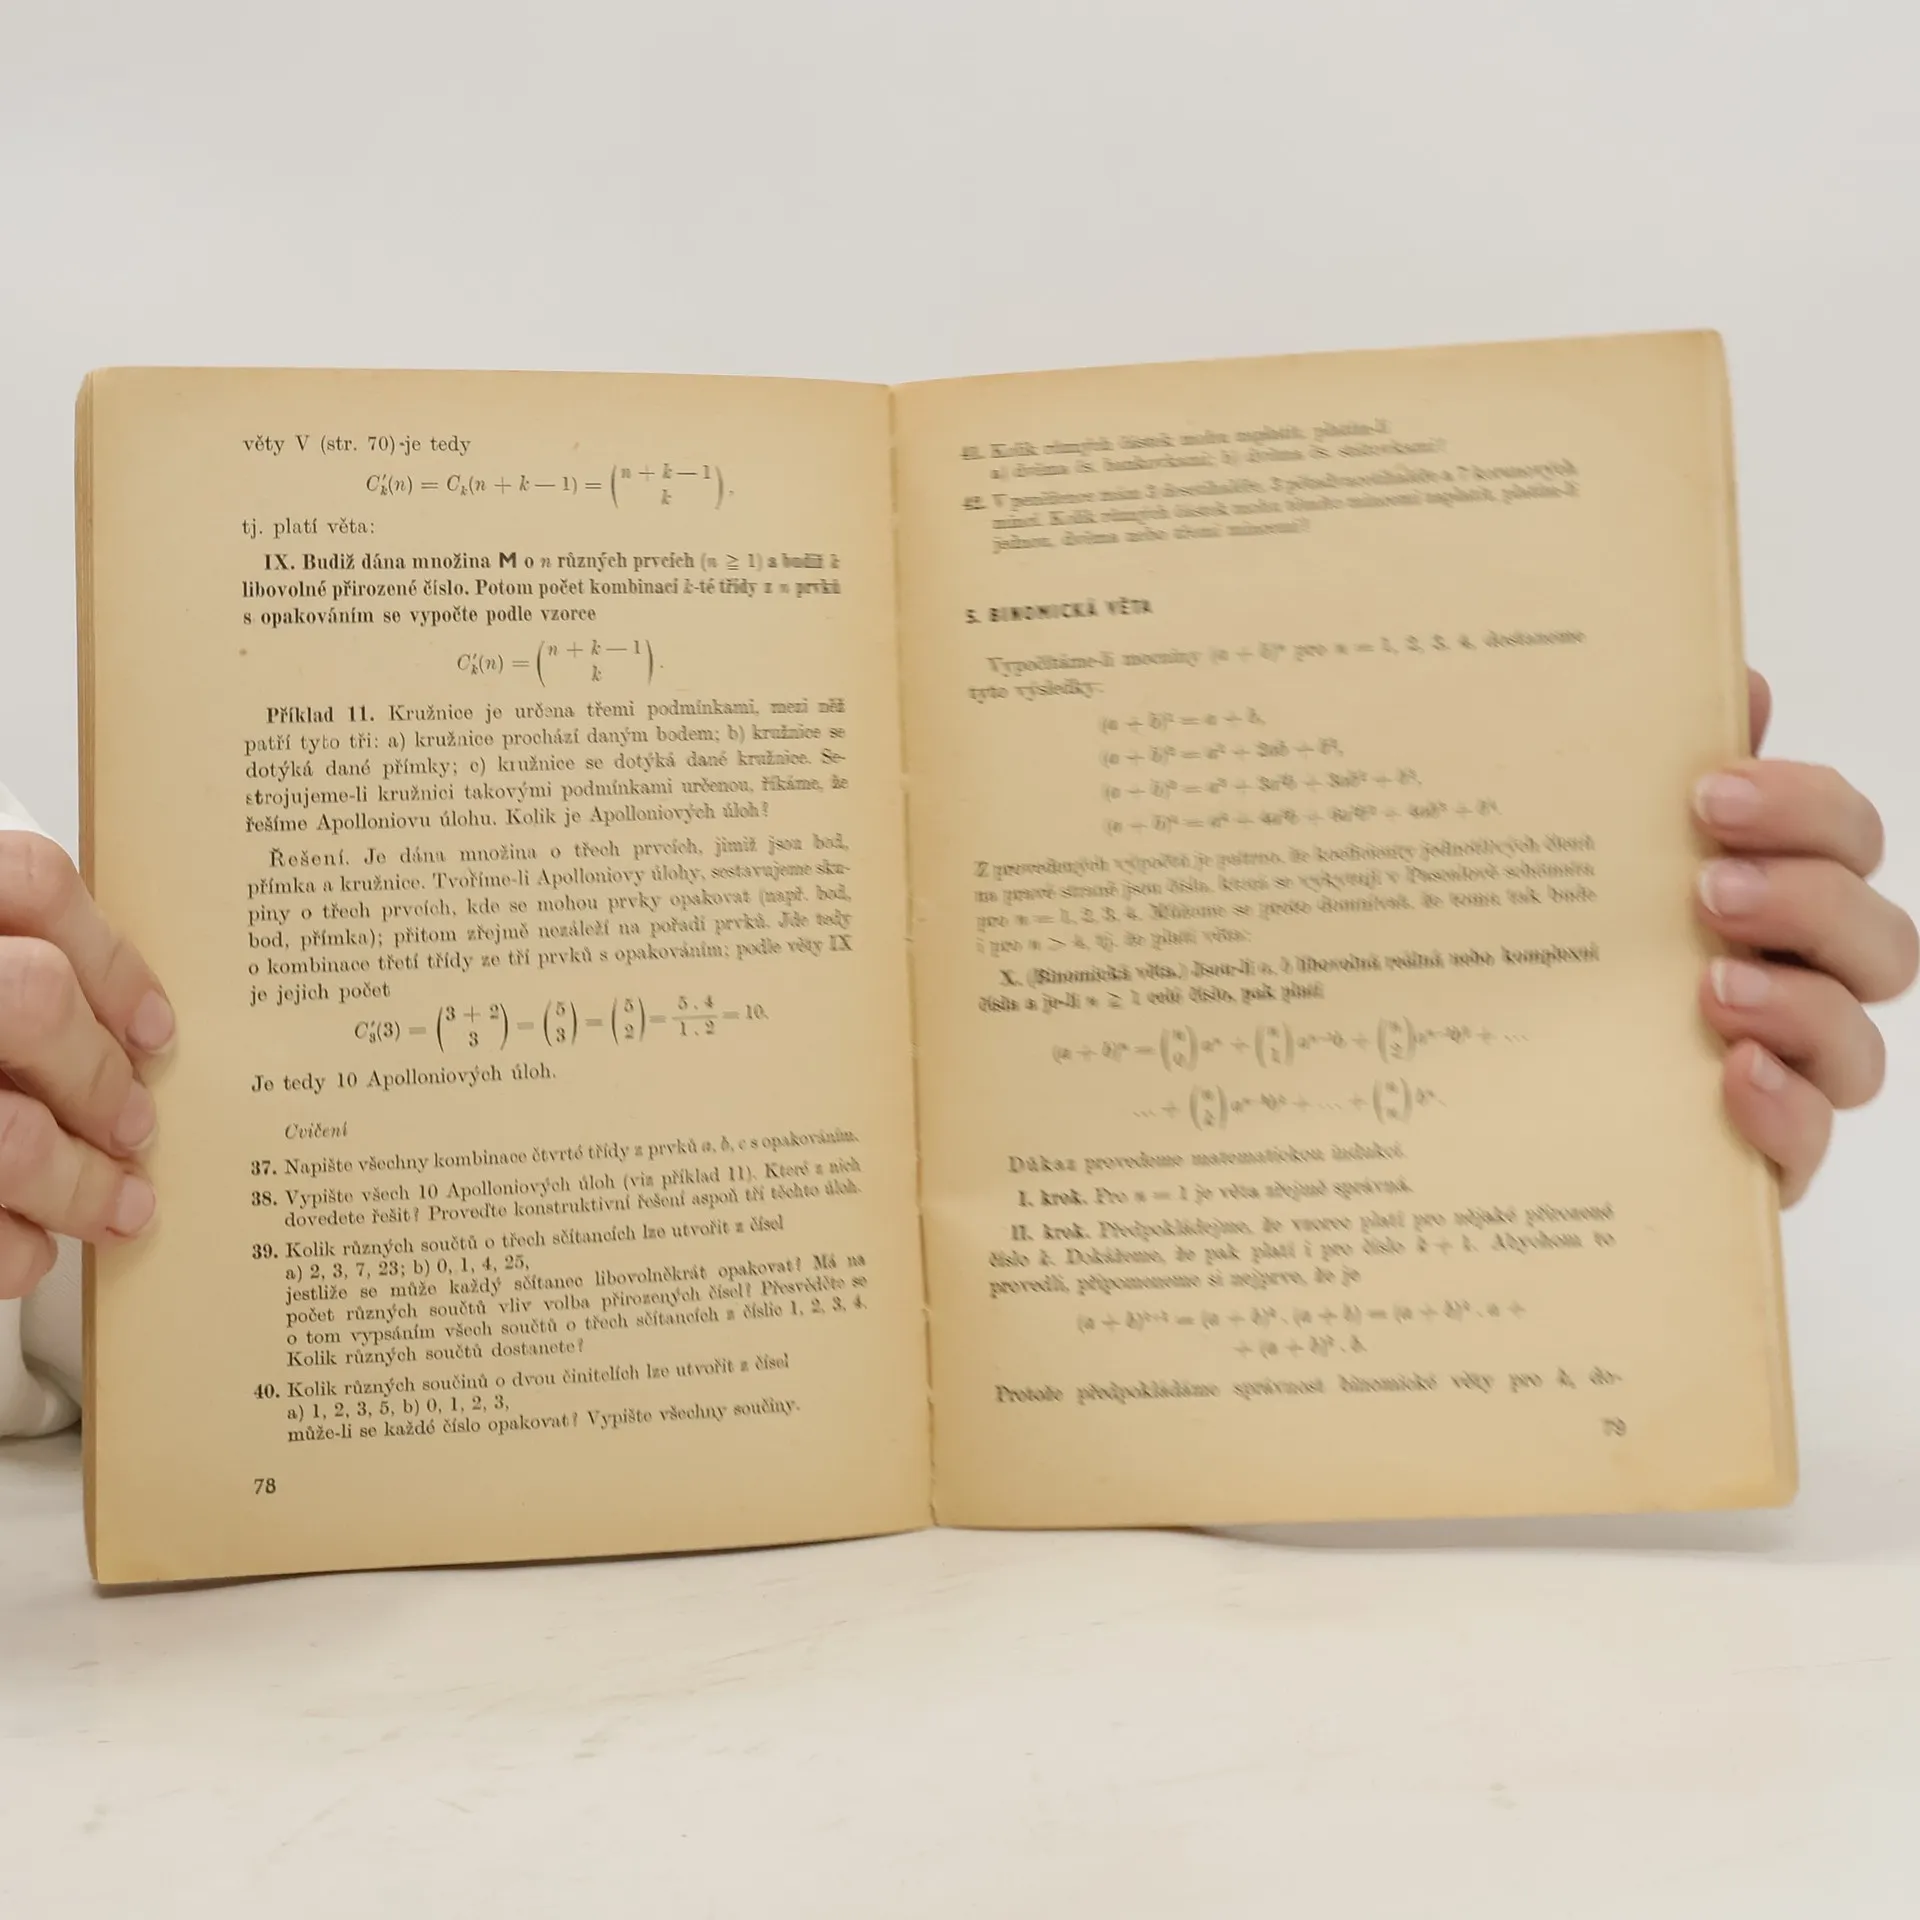 věty V (str. 70) je tedy
C′ₖ(n) = Cₖ(n + k — 1) = (n + k — 1 / k),
tj. platí věta:
IX. Budiž dána množina M o n různých prvcích (n ≧ 1) a budiž k
libovolné přirozené číslo. Potom počet kombinací k-té třídy z n prvků
s opakováním se vypočte podle vzorce
C′ₖ(n) = (n + k — 1 / k).
Příklad 11. Kružnice je určena třemi podmínkami, mezi něž
patří tyto tři: a) kružnice prochází daným bodem; b) kružnice se
dotýká dané přímky; c) kružnice se dotýká dané kružnice. Se-
strojujeme-li kružnici takovými podmínkami určenou, říkáme, že
řešíme Apolloniovu úlohu. Kolik je Apolloniových úloh?
Řešení. Je dána množina o třech prvcích, jimiž jsou bod,
přímka a kružnice. Tvoříme-li Apolloniovy úlohy, sestavujeme sku-
piny o třech prvcích, kde se mohou prvky opakovat (např. bod,
bod, přímka); přitom zřejmě nezáleží na pořadí prvků. Jde tedy
o kombinace třetí třídy ze tří prvků s opakováním; podle věty IX
je jejich počet
C′₃(3) = (3 + 2 / 3) = (5 / 3) = (5 / 2) = 5 . 4 / 1 . 2 = 10.
Je tedy 10 Apolloniových úloh.
Cvičení
37. Napište všechny kombinace čtvrté třídy z prvků a, b, c s opakováním.
38. Vypište všech 10 Apolloniových úloh (viz příklad 11). Které z nich
dovedete řešit? Proveďte konstruktivní řešení aspoň tří těchto úloh.
39. Kolik různých součtů o třech sčítancích lze utvořit z čísel
a) 2, 3, 7, 23; b) 0, 1, 4, 25,
jestliže se může každý sčítanec libovolněkrát opakovat? Má na
počet různých součtů vliv volba přirozených čísel? Přesvědčte se
o tom vypsáním všech součtů o třech sčítancích z číslic 1, 2, 3, 4.
Kolik různých součtů dostanete?
40. Kolik různých součinů o dvou činitelích lze utvořit z čísel
a) 1, 2, 3, 5, b) 0, 1, 2, 3,
může-li se každé číslo opakovat? Vypište všechny součiny.
78
41. Kolik různých částek mohu zaplatit, platím-li
a) dvěma čs. bankovkami; b) dvěma čs. státovkami?
42. V peněžence mám 3 a 7 korunových
mincí. Kolik různých částek mohu těmito mincemi zaplatit, platím-li
jednou, dvěma nebo třemi mincemi?
5. BINOMICKÁ VĚTA
Vypočítáme-li mocniny (a + b)ⁿ pro n = 1, 2, 3, 4, dostaneme
tyto výsledky:
(a + b)¹ = a + b,
(a + b)² = a² + 2ab + b²,
(a + b)³ = a³ + 3a²b + 3ab² + b³,
(a + b)⁴ = a⁴ + 4a³b + 6a²b² + 4ab³ + b⁴.
Z provedených výpočtů je patrno, že koeficienty jednotlivých členů
na pravé straně jsou čísla, která se vyskytují v Pascalově schématu
pro n = 1, 2, 3, 4. Můžeme se proto domnívat, že tomu tak bude
i pro n > 4, tj. že platí věta:
X. (Binomická věta.) Jsou-li a, b libovolná reálná nebo komplexní
čísla a je-li n ≧ 1 celé číslo, pak platí
(a + b)ⁿ = (n / 0) aⁿ + (n / 1) aⁿ⁻¹b + (n / 2) aⁿ⁻²b² + ...
... + (n / k) aⁿ⁻ᵏbᵏ + ... + (n / n) bⁿ.
Důkaz provedeme matematickou indukcí.
I. krok. Pro n = 1 je věta zřejmě správná.
II. krok. Předpokládejme, že vzorec platí pro nějaké přirozené
číslo k. Dokážeme, že pak platí i pro číslo k + 1. Abychom to
provedli, připomeneme si nejprve, že je
(a + b)ᵏ⁺¹ = (a + b)ᵏ . (a + b) = (a + b)ᵏ . a +
+ (a + b)ᵏ . b.
Protože předpokládáme správnost binomické věty pro k, do-
79